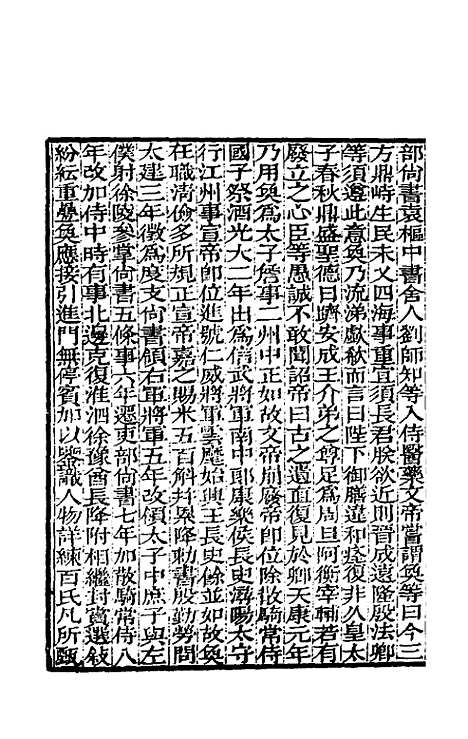 部尚書袁樞中書舍人劉師知等入侍醫藥文帝嘗謂奐等曰今三
方鼎峙生民未乂四海事重宜須長君朕欲近則晉成遠隆殷法卿
等須遵此意奐乃流涕歔欷而言曰陛下御膳違和痊復非久皇太
子春秋鼎盛聖德日躋安成王介弟之尊足為周旦阿衡宰輔若有
廢立之心臣等愚誠不敢聞詔帝曰古之遺直復見於卿天康元年
乃用奐為太子詹事二州中正如故文帝崩廢帝即位除散騎常侍
國子祭酒光大二年出為信武將軍南中郎康樂侯長史潯陽太守
行江州事宣帝即位進號仁威將軍雲麾始興王長史餘並如故奐
在職清儉多所規正宣帝嘉之賜米五百斛并累降勅書殷勤勞問
太建三年徵為度支尚書領右軍將軍五年改領太子中庶子與左
僕射徐陵參掌尚書五條事六年遷吏部尚書七年加散騎常侍八
年改加侍中時有事北邊克復淮泗徐豫酋長降附相繼封賞選敘
紛紜重疊奐應接引進門無停賓加以鑒識人物詳練百氏凡所甄